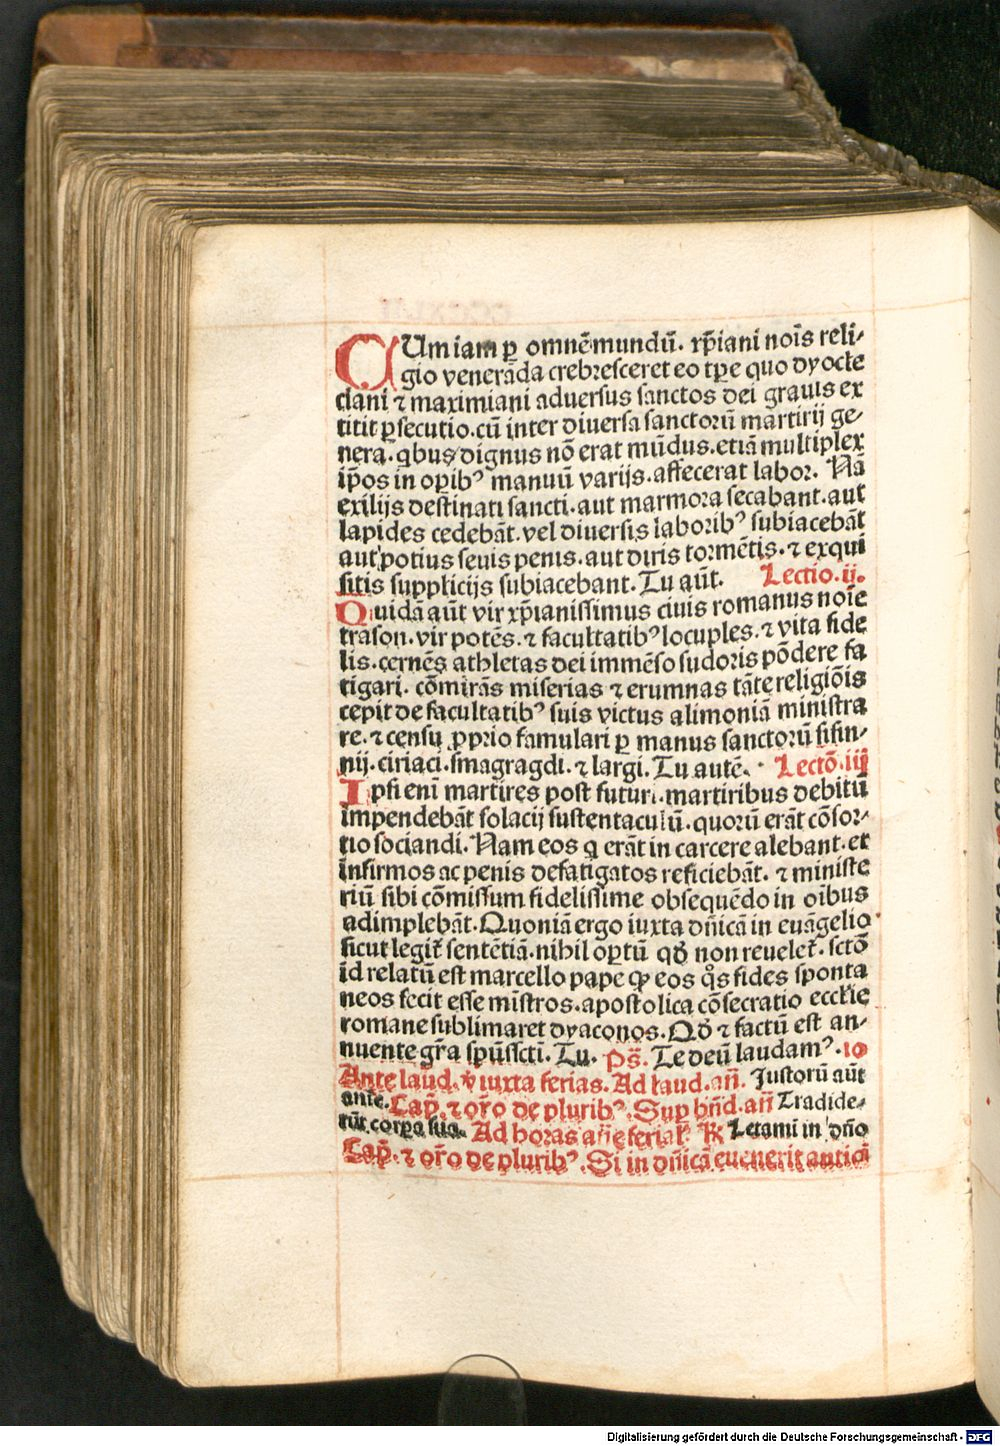 CUm iam ꝑ omnē mundū. xp̄iani noīs reli⸗
gio venerāda crebresceret eo tꝑe quo dyocle
ciani ⁊ maximiani aduersus sanctos dei grauis ex
titit ꝑsecutio. cū inter diuersa sanctorū martirij ge⸗
nera. qͥbus dignus nō erat mūdus. etiā multiplex
ip̄os in oꝑibꝰ manuū varijs. affecerat labor. Nā
exilijs destinati sancti. aut marmora secabant. aut
lapides cedebāt. vel diuersis laboribꝰ subiacebāt
aut potius seuis penis. aut diris tormētis. ⁊ exqui
sitis supplicijs subiacebant. Tu aūt. Lectio. ij.
Quidā aūt vir xp̄ianissimus ciuis romanus noīe
trason. vir potēs. ⁊ facultatibꝰ locuples. ⁊ vita fide
lis. cernēs athletas dei immēso sudoris pōdere fa
tigari. cōmirās miserias ⁊ erumnas tāte religiōis
cepit de facultatibꝰ suis victus alimoniā ministra
re. ⁊ censu ꝓprio famulari ꝑ manus sanctorū sisin⸗
nij. ciriaci. smagragdi. ⁊ largi. Tu autē. Lectō. iij
Ipsi enī martires post futuri. martiribus debitū
impendebāt solacij sustentaculū. quorū erāt cōsor⸗
tio sociandi. Nam eos q̄ erāt in carcere alebant. et
infirmos ac penis defatigatos reficiebāt. ⁊ ministe
riū sibi cōmissum fidelissime obsequēdo in oībus
adimplebāt. Quoniā ergo iuxta dn̄icā in euāgelio
sicut legit᷑ sentētiā. nihil oꝑtū qd̄ non reuelet᷑. sctō
id relatū est marcello pape ꝙ eos qͦs fides sponta
neos fecit esse mīstros. apostolica cōsecratio ecclīe
romane sublimaret dyaconos. Qd̄ ⁊ factū est an⸗
nuente gr̄a spūssctī. Tu. Ps̄. Te deū laudamꝰ. io
Ante laud̄. v̄ iuxta ferias. Ad laud. an̄. Justorū aūt
anīe. Cap̄. ⁊ or̄o de pluribꝰ. Sup bn̄d. an̄ Tradide⸗
rūt. corꝑa sua. Ad horas an̄e ferial᷑. ℟ Letami in dn̄o
Cap̄. ⁊ or̄o de pluribꝰ. Si in dn̄icā euenerit antici
Digitalisierung gefördert durch die Deutsche Forschungsgemeinschaft - DFG